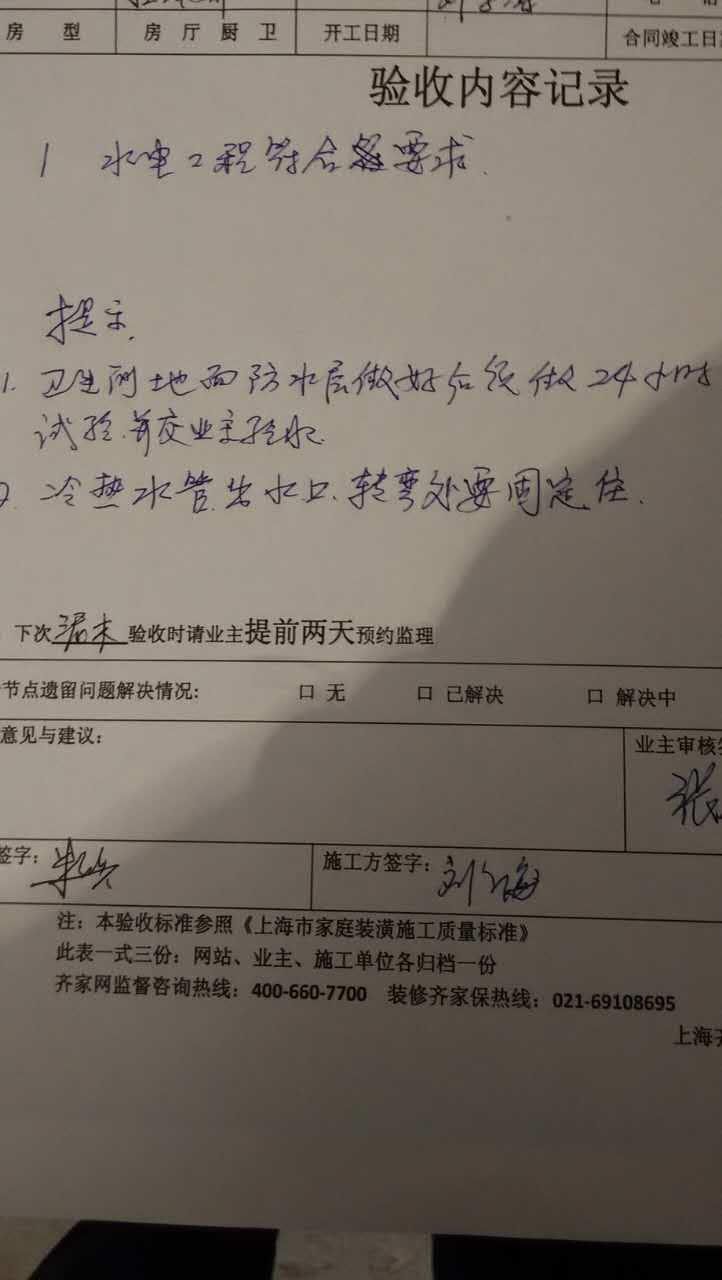 房 型 房 厅 厨 卫 开工日期 合同竣工日
验收内容记录
1 水电工程符合要求.
提示.
1. 卫生间地面防水层做好后须做24小时
试验.并交业主验收.
2. 冷热水管.出水口.转弯处要固定住.
下次 验收时请业主提前两天预约监理
节点遗留问题解决情况: 口 无 口 已解决 口 解决中
意见与建议:
业主审核
张
签字: 施工方签字: 刘 海
注: 本验收标准参照《上海市家庭装潢施工质量标准》
此表一式三份: 网站、业主、施工单位各归档一份
齐家网监督咨询热线: 400-660-7700 装修齐家保热线: 021-69108695
上海